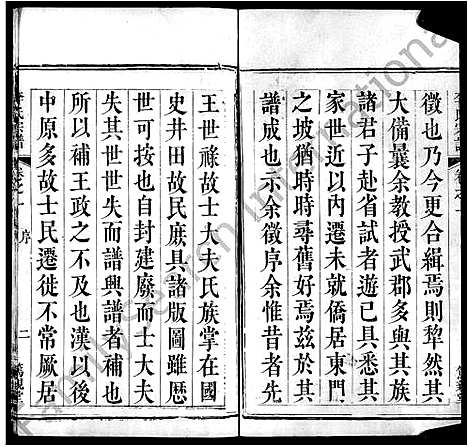 徵也乃今更合緝焉則犁然其
大備曩余教授武郡多與其族
諸君子赴省試者遊已具悉其
家世近以內遷未就僑居東門
之坡猶時時尋舊好焉茲於其
譜成也示余徵序余惟昔者先
王世祿故士大夫氏族掌在國
史井田故民庶具諸版圖雖歷
世可按也自封建廢而士大夫
失其世世失而譜興譜者補也
所以補王政之不及也漢以後
中原多故士民遷徙不常厥居
李氏宗譜
卷之一
序
二
FamilySearch International